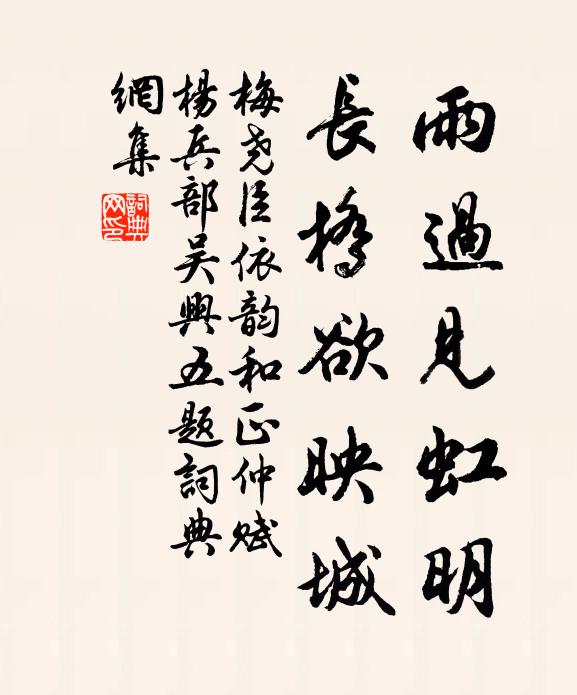 雨過見虹明
長橋欲映城
梅堯臣依韵和正仲賦
楊兵部吴興五題詞典
網集
詞典
网印